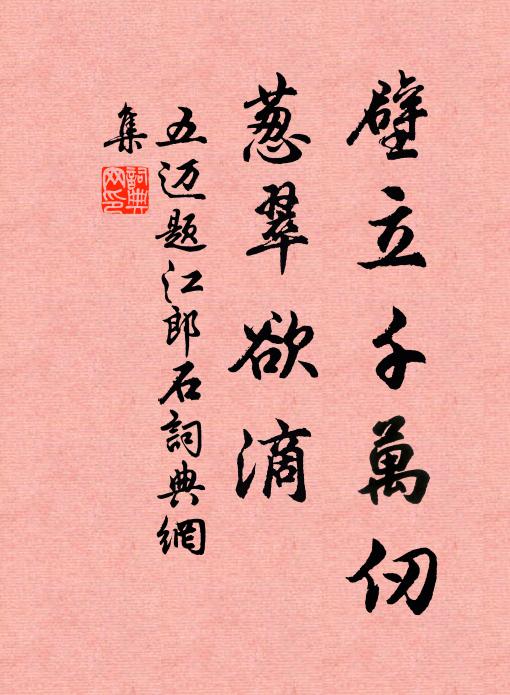 壁立千萬仞
葱翠欲滴
五迈题江郎石詞典網
集
詞典
网印